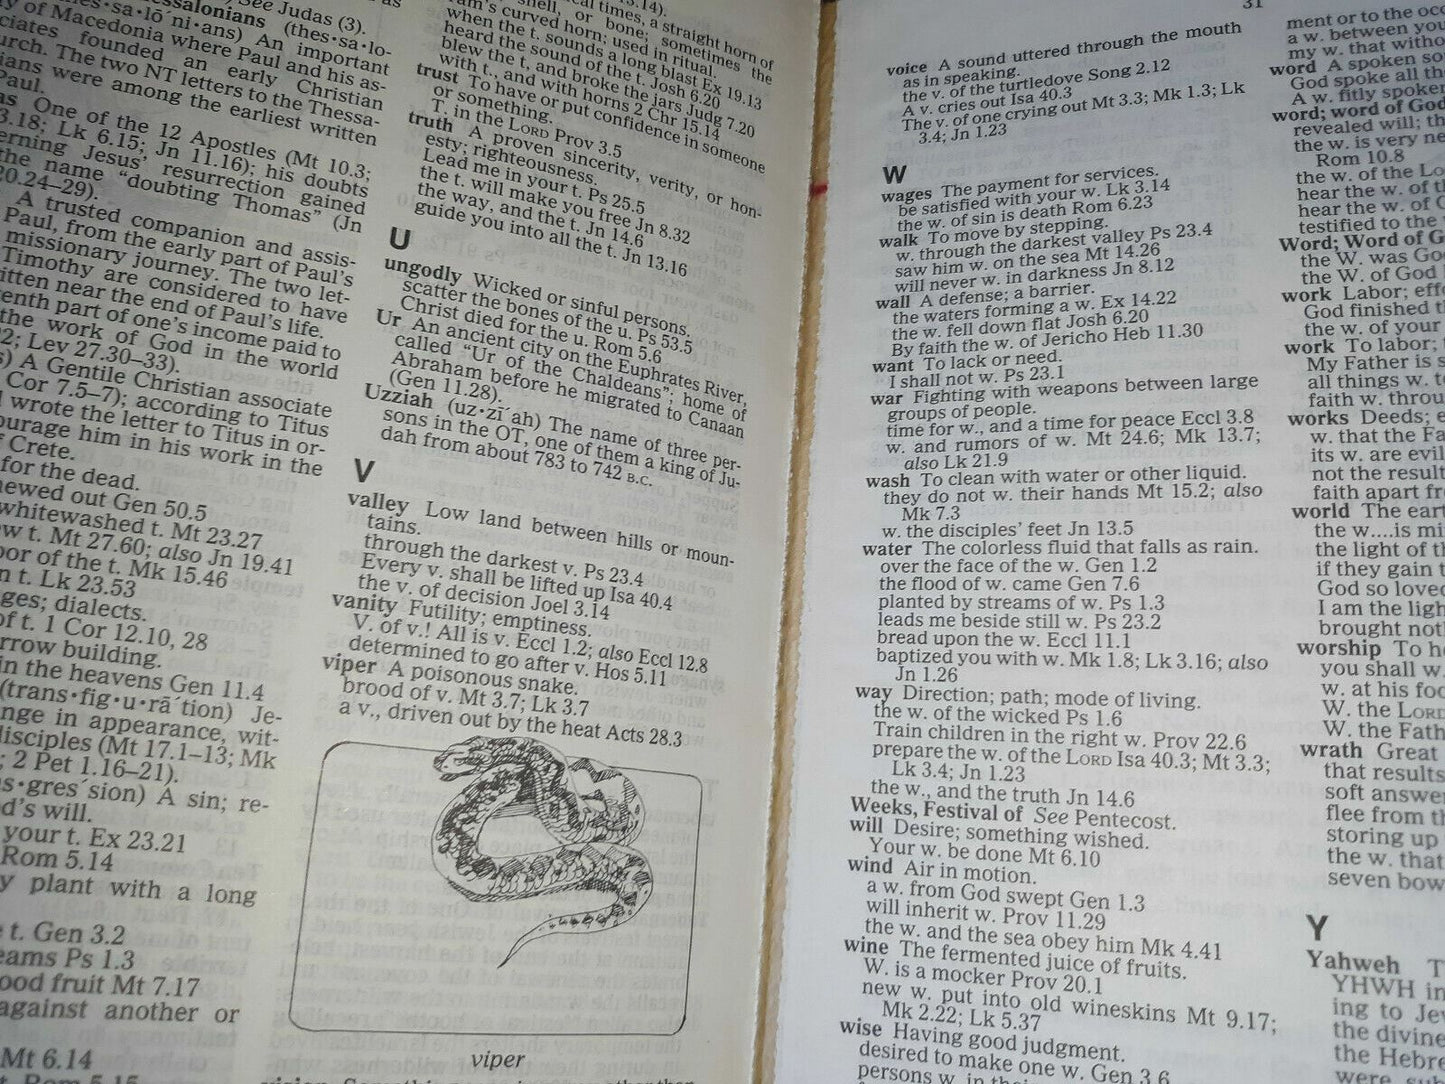 See Judas (3).
ssalonians (thes•sa•lo-
es•sa•lō´ni•ans) An important
y of Macedonia where Paul and his as-
ciates founded an early Christian
urch. The two NT letters to the Thessa-
ians were among the earliest written
Paul.
as One of the 12 Apostles (Mt 10.3;
3.18; Lk 6.15; Jn 11.16); his doubts
erning Jesus' resurrection gained
the name "doubting Thomas" (Jn
20.24–29).
A trusted companion and assis-
Paul, from the early part of Paul's
missionary journey. The two let-
Timothy are considered to have
itten near the end of Paul's life.
enth part of one's income paid to
the work of God in the world
2; Lev 27.30–33).
s) A Gentile Christian associate
Cor 7.5–7); according to Titus
l wrote the letter to Titus in or-
ourage him in his work in the
f Crete.
for the dead.
hewed out Gen 50.5
whitewashed t. Mt 23.27
w t. Mt 27.60; also Jn 19.41
oor of the t. Mk 15.46
n t. Lk 23.53
ges; dialects.
of t. 1 Cor 12.10, 28
rrow building.
in the heavens Gen 11.4
(trans•fig•u•rā´tion) Je-
nge in appearance, wit-
disciples (Mt 17.1–13; Mk
; 2 Pet 1.16–21).
s•gres´sion) A sin; re-
d's will.
your t. Ex 23.21
Rom 5.14
y plant with a long
t. Gen 3.2
eams Ps 1.3
ood fruit Mt 7.17
against another or
Mt 6.14
t. Rom 5.15
shell, or bone; sometimes the
cal times, a straight horn of
ram's curved horn; used in ritual.
when the t. sounds a long blast Ex 19.13
heard the sound of the t. Josh 6.20
blew the t, and broke the jars Judg 7.20
with t., and with horns 2 Chr 15.14
trust To have or put confidence in someone
or something.
T. in the LORD Prov 3.5
truth A proven sincerity, verity, or hon-
esty; righteousness.
Lead me in your t. Ps 25.5
the t. will make you free Jn 8.32
the way, and the t. Jn 14.6
guide you into all the t. Jn 13.16
U
ungodly Wicked or sinful persons.
scatter the bones of the u. Ps 53.5
Christ died for the u. Rom 5.6
Ur An ancient city on the Euphrates River,
called "Ur of the Chaldeans"; home of
Abraham before he migrated to Canaan
(Gen 11.28).
Uzziah (uz•zī´ah) The name of three per-
sons in the OT, one of them a king of Ju-
dah from about 783 to 742 B.C.
V
valley Low land between hills or moun-
tains.
through the darkest v. Ps 23.4
Every v. shall be lifted up Isa 40.4
the v. of decision Joel 3.14
vanity Futility; emptiness.
V. of v.! All is v. Eccl 1.2; also Eccl 12.8
determined to go after v. Hos 5.11
viper A poisonous snake.
brood of v. Mt 3.7; Lk 3.7
a v., driven out by the heat Acts 28.3
viper
31
voice A sound uttered through the mouth
as in speaking.
the v. of the turtledove Song 2.12
A v. cries out Isa 40.3
The v. of one crying out Mt 3.3; Mk 1.3; Lk
3.4; Jn 1.23
W
wages The payment for services.
be satisfied with your w. Lk 3.14
the w. of sin is death Rom 6.23
walk To move by stepping.
w. through the darkest valley Ps 23.4
saw him w. on the sea Mt 14.26
will never w. in darkness Jn 8.12
wall A defense; a barrier.
the waters forming a w. Ex 14.22
the w. fell down flat Josh 6.20
By faith the w. of Jericho Heb 11.30
want To lack or need.
I shall not w. Ps 23.1
war Fighting with weapons between large
groups of people.
time for w., and a time for peace Eccl 3.8
w. and rumors of w. Mt 24.6; Mk 13.7;
also Lk 21.9
wash To clean with water or other liquid.
they do not w. their hands Mt 15.2; also
Mk 7.3
w. the disciples' feet Jn 13.5
water The colorless fluid that falls as rain.
over the face of the w. Gen 1.2
the flood of w. came Gen 7.6
planted by streams of w. Ps 1.3
leads me beside still w. Ps 23.2
bread upon the w. Eccl 11.1
baptized you with w. Mk 1.8; Lk 3.16; also
Jn 1.26
way Direction; path; mode of living.
the w. of the wicked Ps 1.6
Train children in the right w. Prov 22.6
prepare the w. of the LORD Isa 40.3; Mt 3.3;
Lk 3.4; Jn 1.23
the w., and the truth Jn 14.6
Weeks, Festival of See Pentecost.
will Desire; something wished.
Your w. be done Mt 6.10
wind Air in motion.
a w. from God swept Gen 1.3
will inherit w. Prov 11.29
the w. and the sea obey him Mk 4.41
wine The fermented juice of fruits.
W. is a mocker Prov 20.1
new w. put into old wineskins Mt 9.17;
Mk 2.22; Lk 5.37
wise Having good judgment.
desired to make one w. Gen 3.6
persons w. in their
ment or to the occ
a w. between you
my w. that witho
word A spoken so
God spoke all th
A w. fitly spoken
word; word of God
revealed will; th
the w. is very ne
Rom 10.8
the w. of the Lo
hear the w. of t
hear the w. of C
testified to the
Word; Word of G
the W. was Go
the W. of God
work Labor; effo
God finished t
the w. of your
work To labor; t
My Father is s
all things w. to
faith w. throu
works Deeds; e
w. that the Fa
its w. are evil
not the result
faith apart fr
world The eart
the w....is mi
the light of th
if they gain t
God so loved
I am the ligh
brought noth
worship To ho
you shall w.
w. at his foo
W. the LORD
W. the Fath
wrath Great
that results
soft answer
flee from th
storing up
the w. that
seven bow
Y
Yahweh T
YHWH in
ing to Jew
the divine
the Hebre
were sub